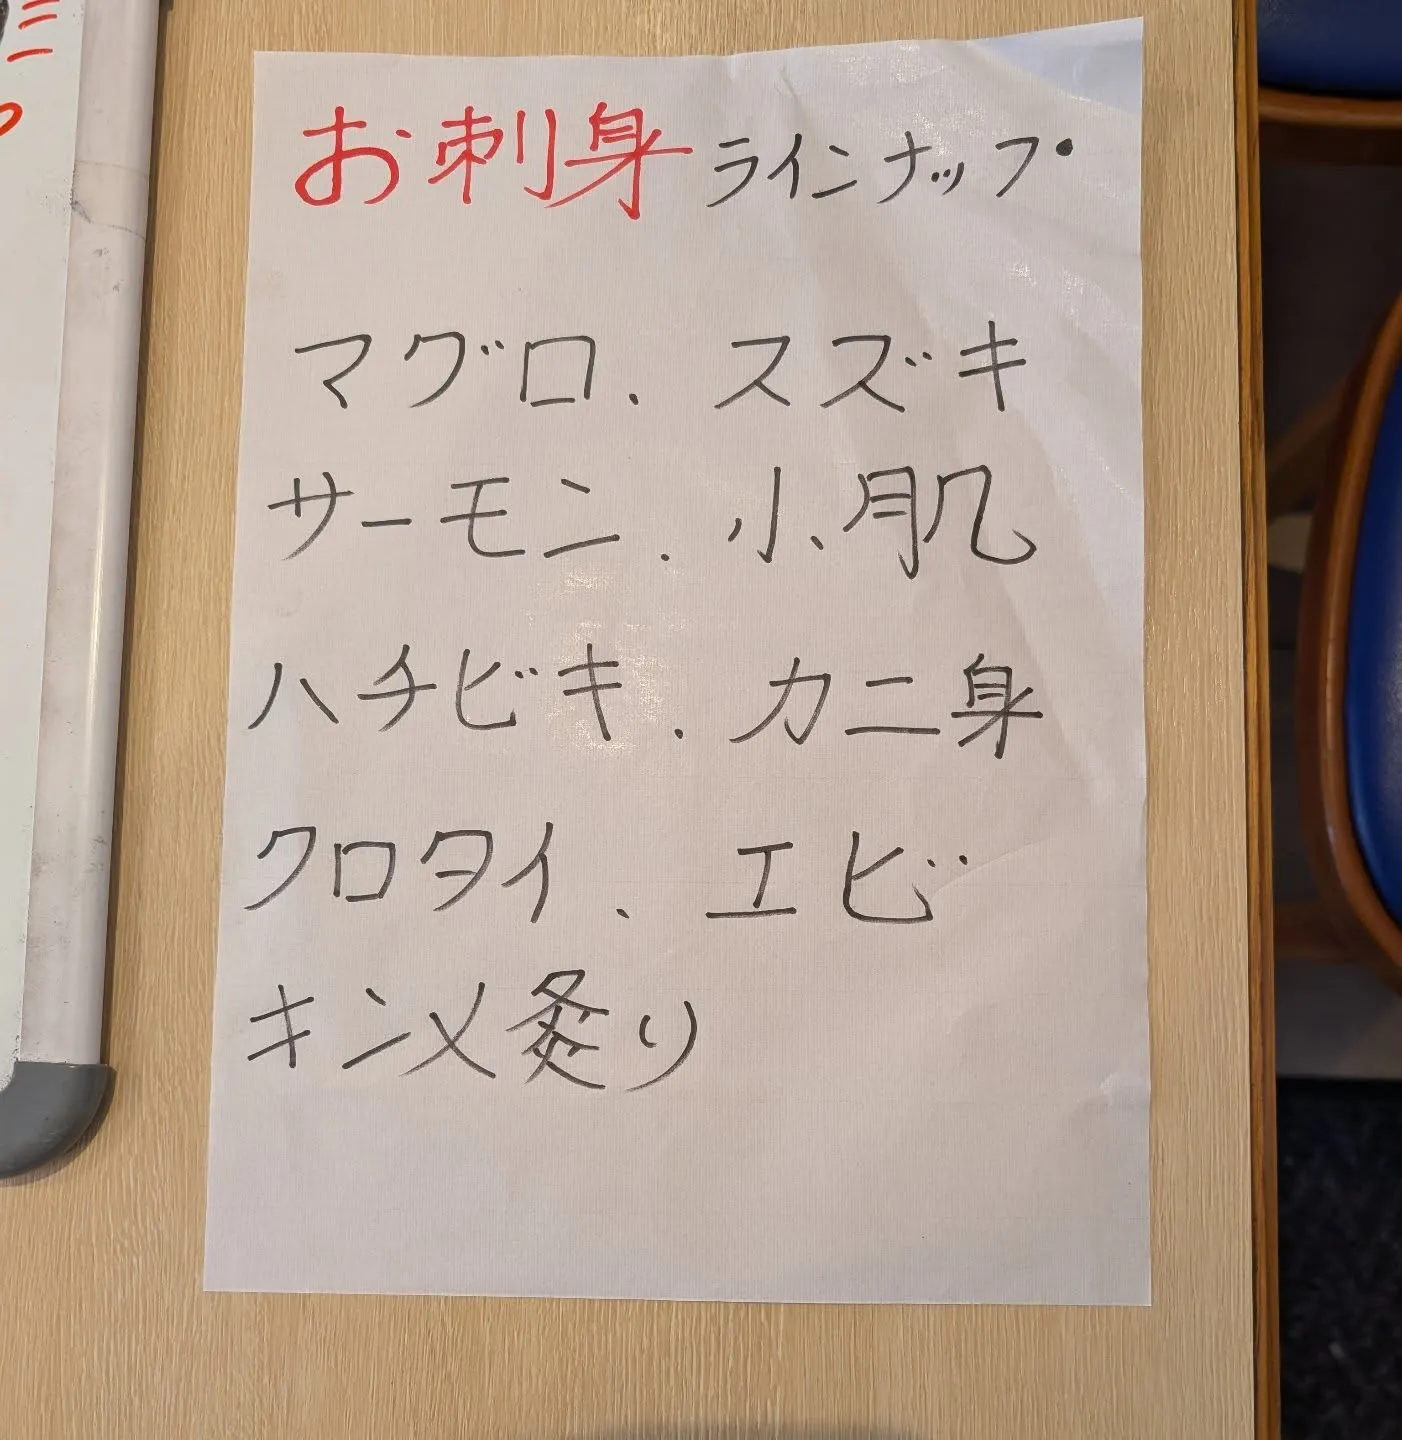 お刺身ラインナップ
マグロ、スズキ
サーモン、小肌
ハチビキ、カニ身
クロタイ、エビ
キンメ炙り